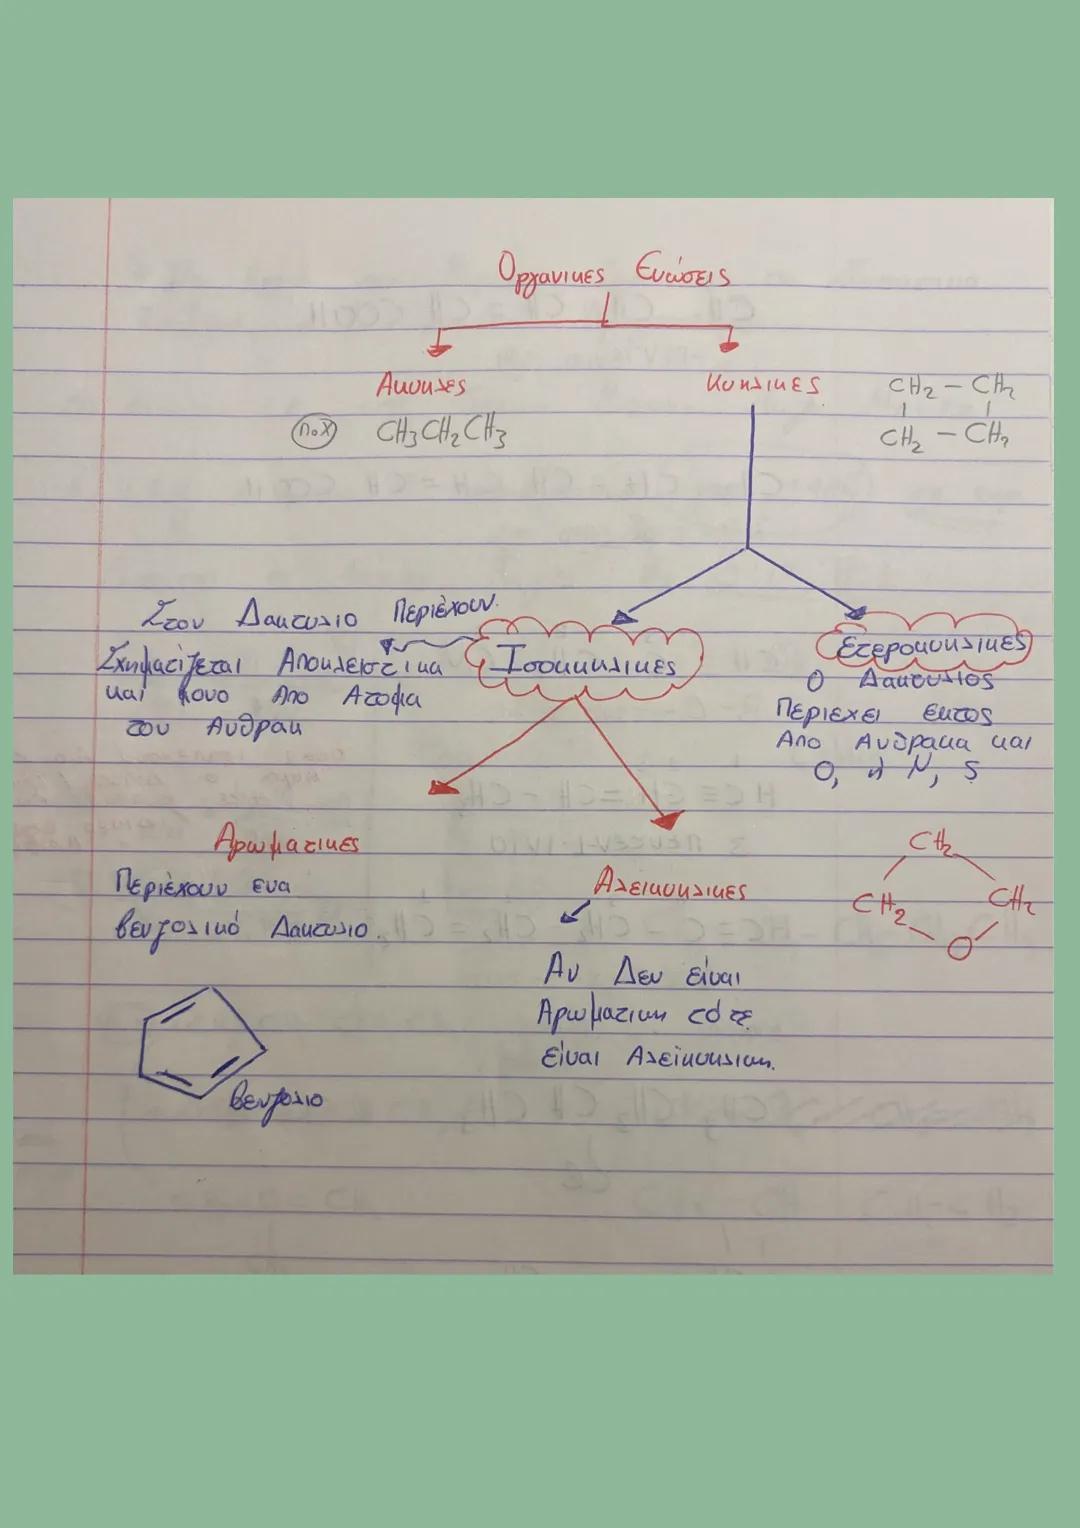 Οργανικες Ενώσεις
Ακυκλες
Κυκλικες
CH₂ – CH₂
CH₂ – CH₂
π.χ CH₃CH₂CH₃
Στον Δακτυλιο Περιέχουν.
Σχηματίζεται Αποκλειστικα
και μονο Απο Ατομα
του Ανθρακ
Ισοκυκλικες
Ετεροκυκλικες
Ο Δακτυλιος
Περιεχει εκτος
Απο Ανθρακα και
Ο, ή Ν, S
Αρωματικες
Περιέχουν ενα
βενζολικό Δακτυλιο.
Αλεικυκλικες
Αν Δεν είναι
Αρωματικη τότε
είναι Αλεϊκυκλικη.
CH₂
CH₂ CH₂
O
βενζολιο